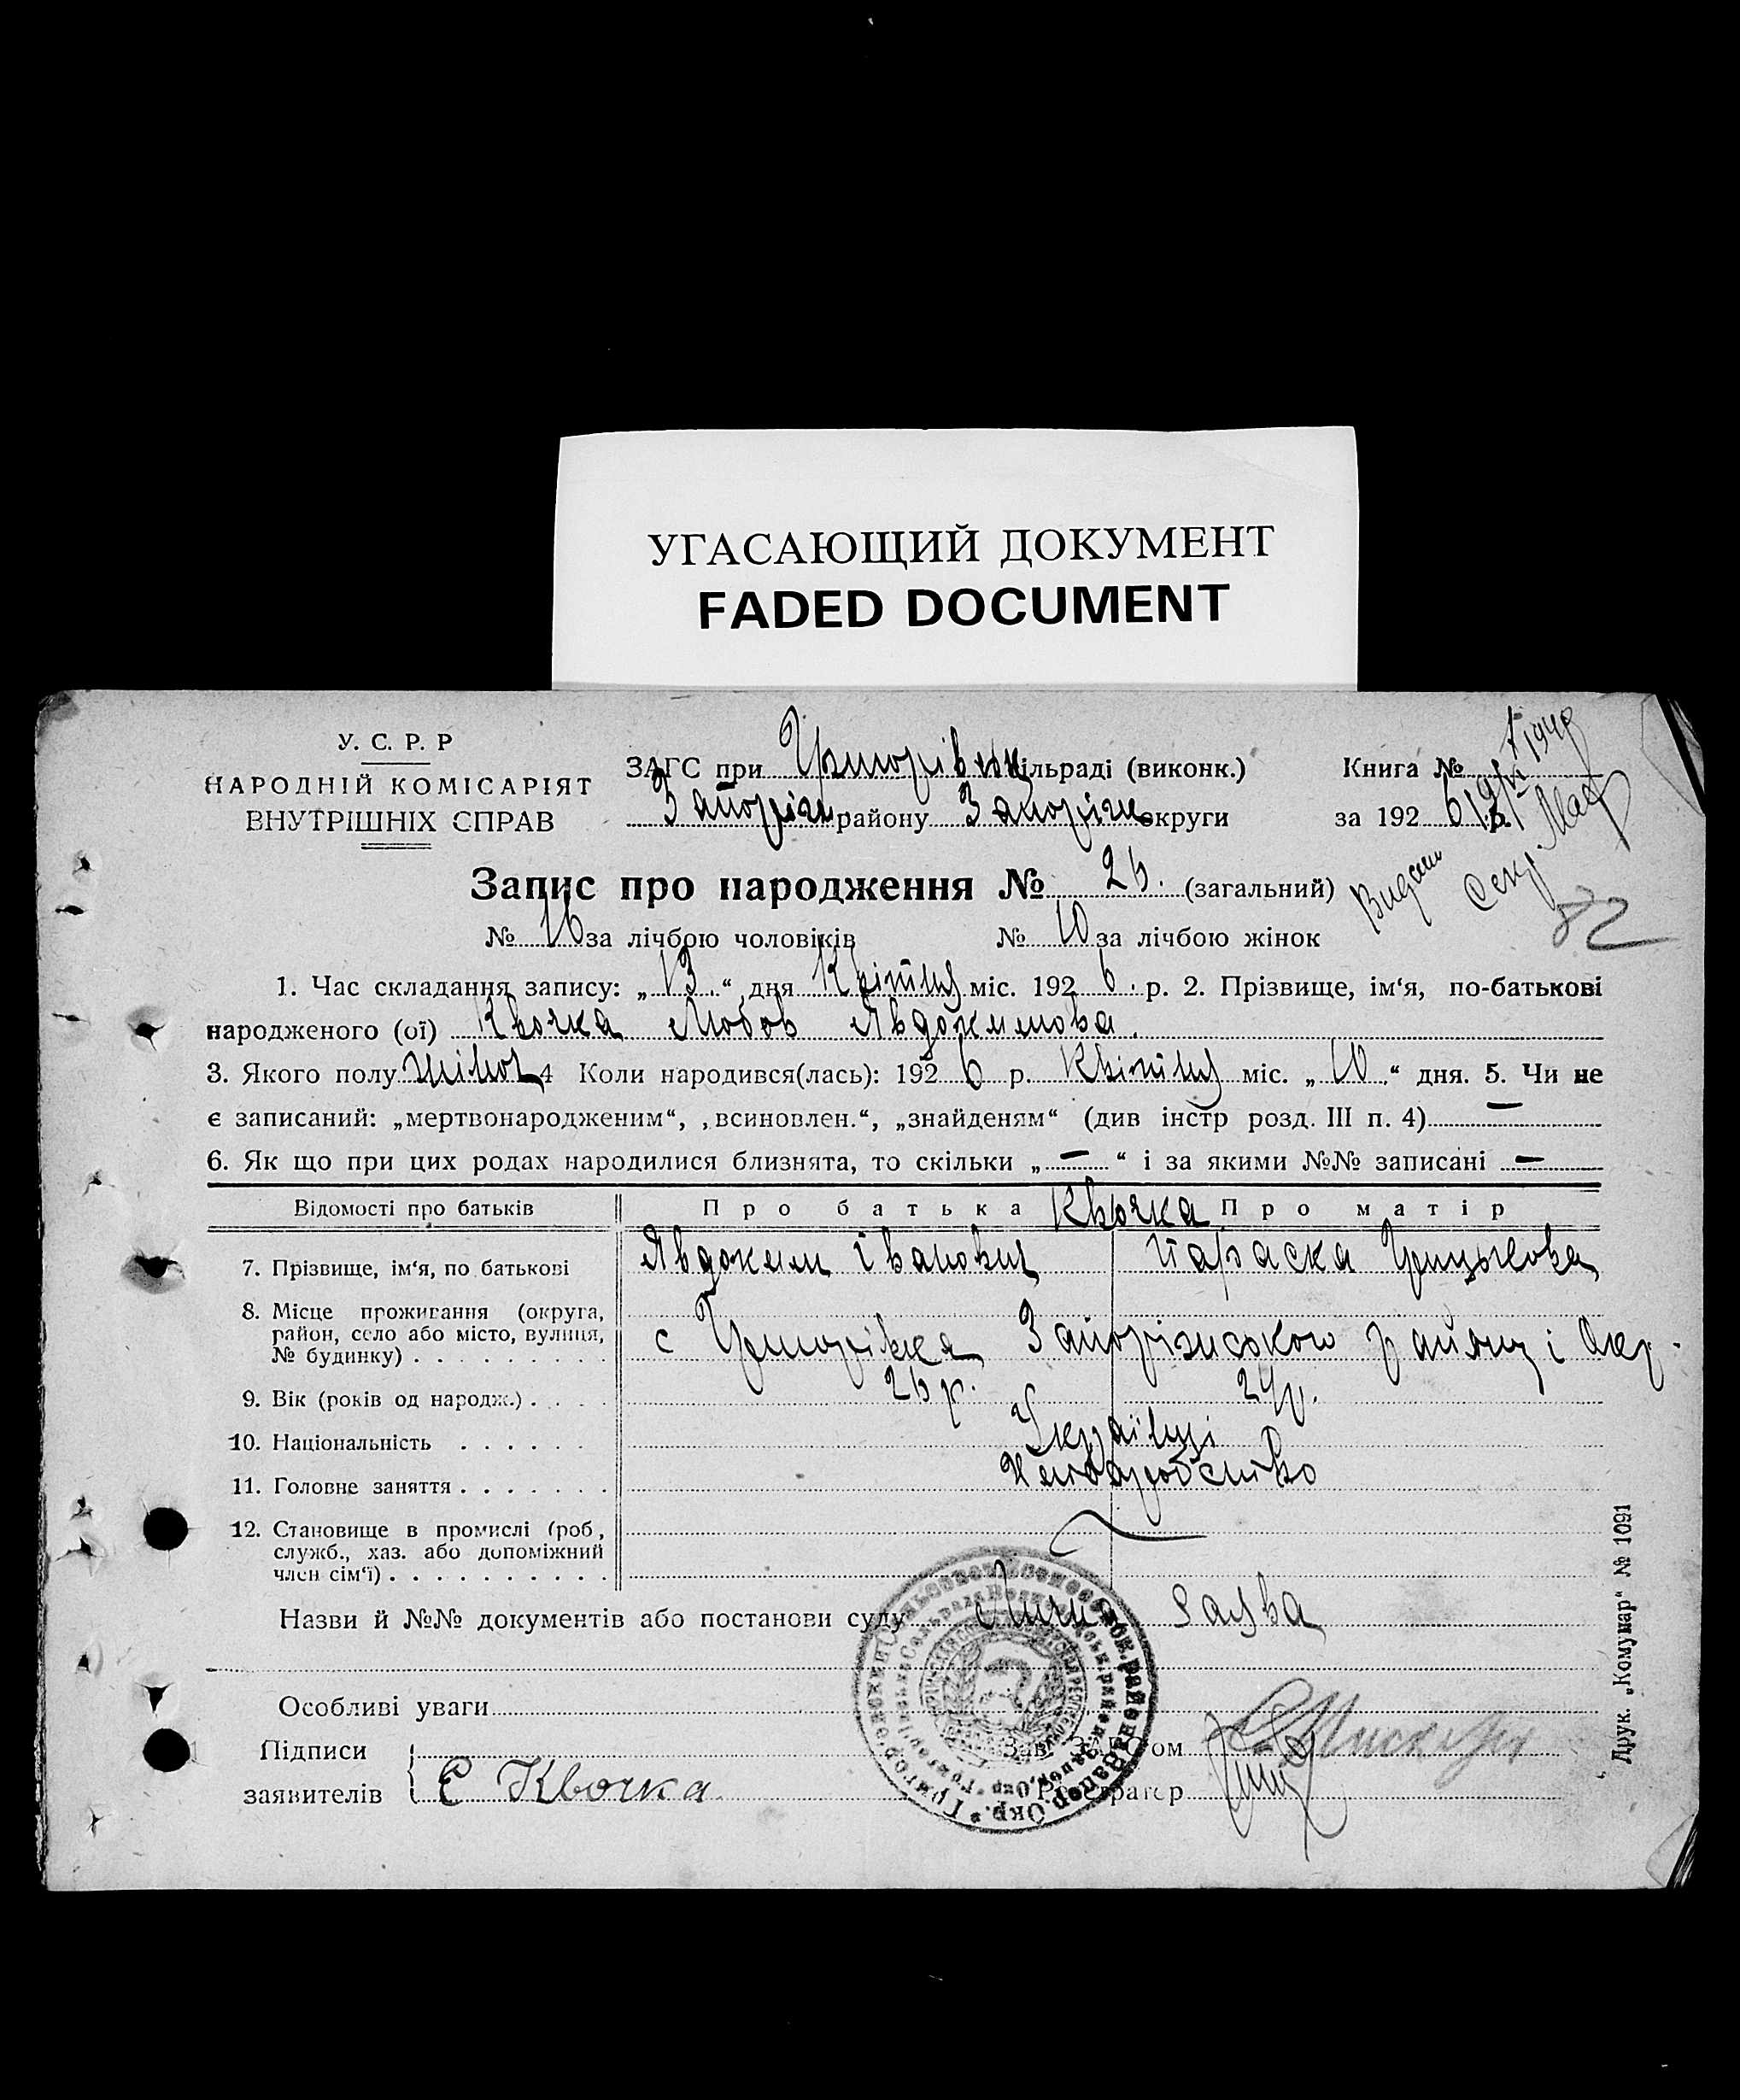 УГАСАЮЩИЙ ДОКУМЕНТ
FADED DOCUMENT
У. С. Р. Р
НАРОДНІЙ КОМІСАРІЯТ
ВНУТРІШНІХ СПРАВ
ЗАГС при Григорівськ сільраді (виконк.)
Запоріжч району Запоріжч округи
Книга №
за 1926
Запис про народження № 26. (загальний)
№ 16 за лічбою чоловіків № 10 за лічбою жінок
82
1. Час складання запису: „13.“ дня Квітня міс. 1926. р. 2. Прізвище, ім‘я, по-батькові
народженого (ої) Квочка Любов Явдокимова.
3. Якого полу жіноч 4 Коли народився(лась): 1926 р. Квітня міс. „10.“ дня. 5. Чи не
є записаний: „мертвонародженим“, „всиновлен.“, „знайденям“ (див інстр розд. III п. 4) —
6. Як що при цих родах народилися близнята, то скільки „—“ і за якими №№ записані —
Відомості про батьків Про батька Квочка Про матір
7. Прізвище, ім‘я, по батькові Явдоким Іванович Параска Грицькова
8. Місце проживання (округа,
район, село або місто, вулиця,
№ будинку) . . . . . . . . . с Григорівка Запорізького району і Окр.
9. Вік (років од народж.) . . . . 26 р. 24 р.
10. Національність . . . . . . Українці
11. Головне заняття . . . . . . . Хліборобство
12. Становище в промислі (роб,
служб., хаз. або допоміжний
член сім‘ї) . . . . . . . . . .
Назви й №№ документів або постанови суду Лична заява
Особливі уваги
Підписи
заявителів Є Квочка.
Зав. ЗАГСом
Реєстратор
Друк. „Комунар“ № 1091